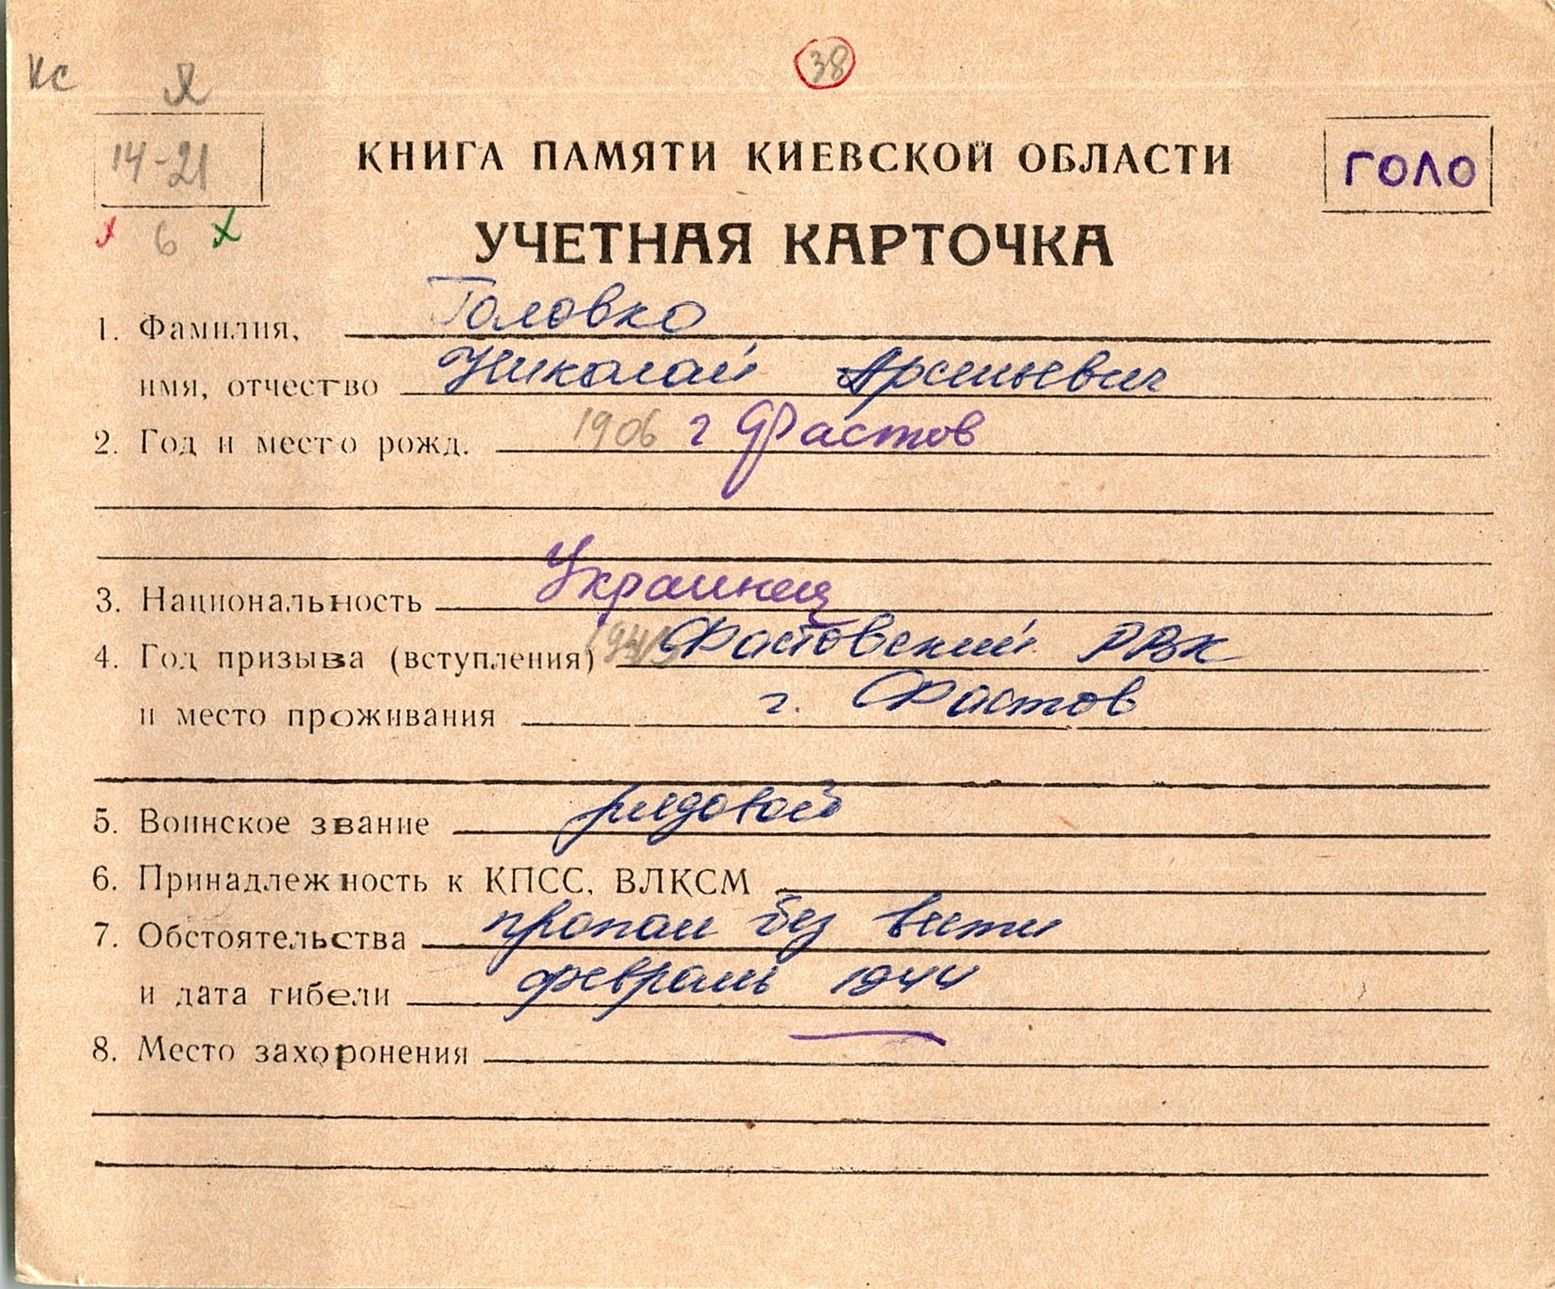 КС
Я
38
14-21
КНИГА ПАМЯТИ КИЕВСКОЙ ОБЛАСТИ
ГОЛО
6
УЧЕТНАЯ КАРТОЧКА
1. Фамилия, Головко
имя, отчество Николай Арсеньевич
2. Год и место рожд. 1906 г Фастов
3. Национальность Украинец
4. Год призыва (вступления) Фастовский РВК
и место проживания г. Фастов
5. Воинское звание рядовой
6. Принадлежность к КПСС, ВЛКСМ
7. Обстоятельства пропал без вести
и дата гибели февраль 1944
8. Место захоронения